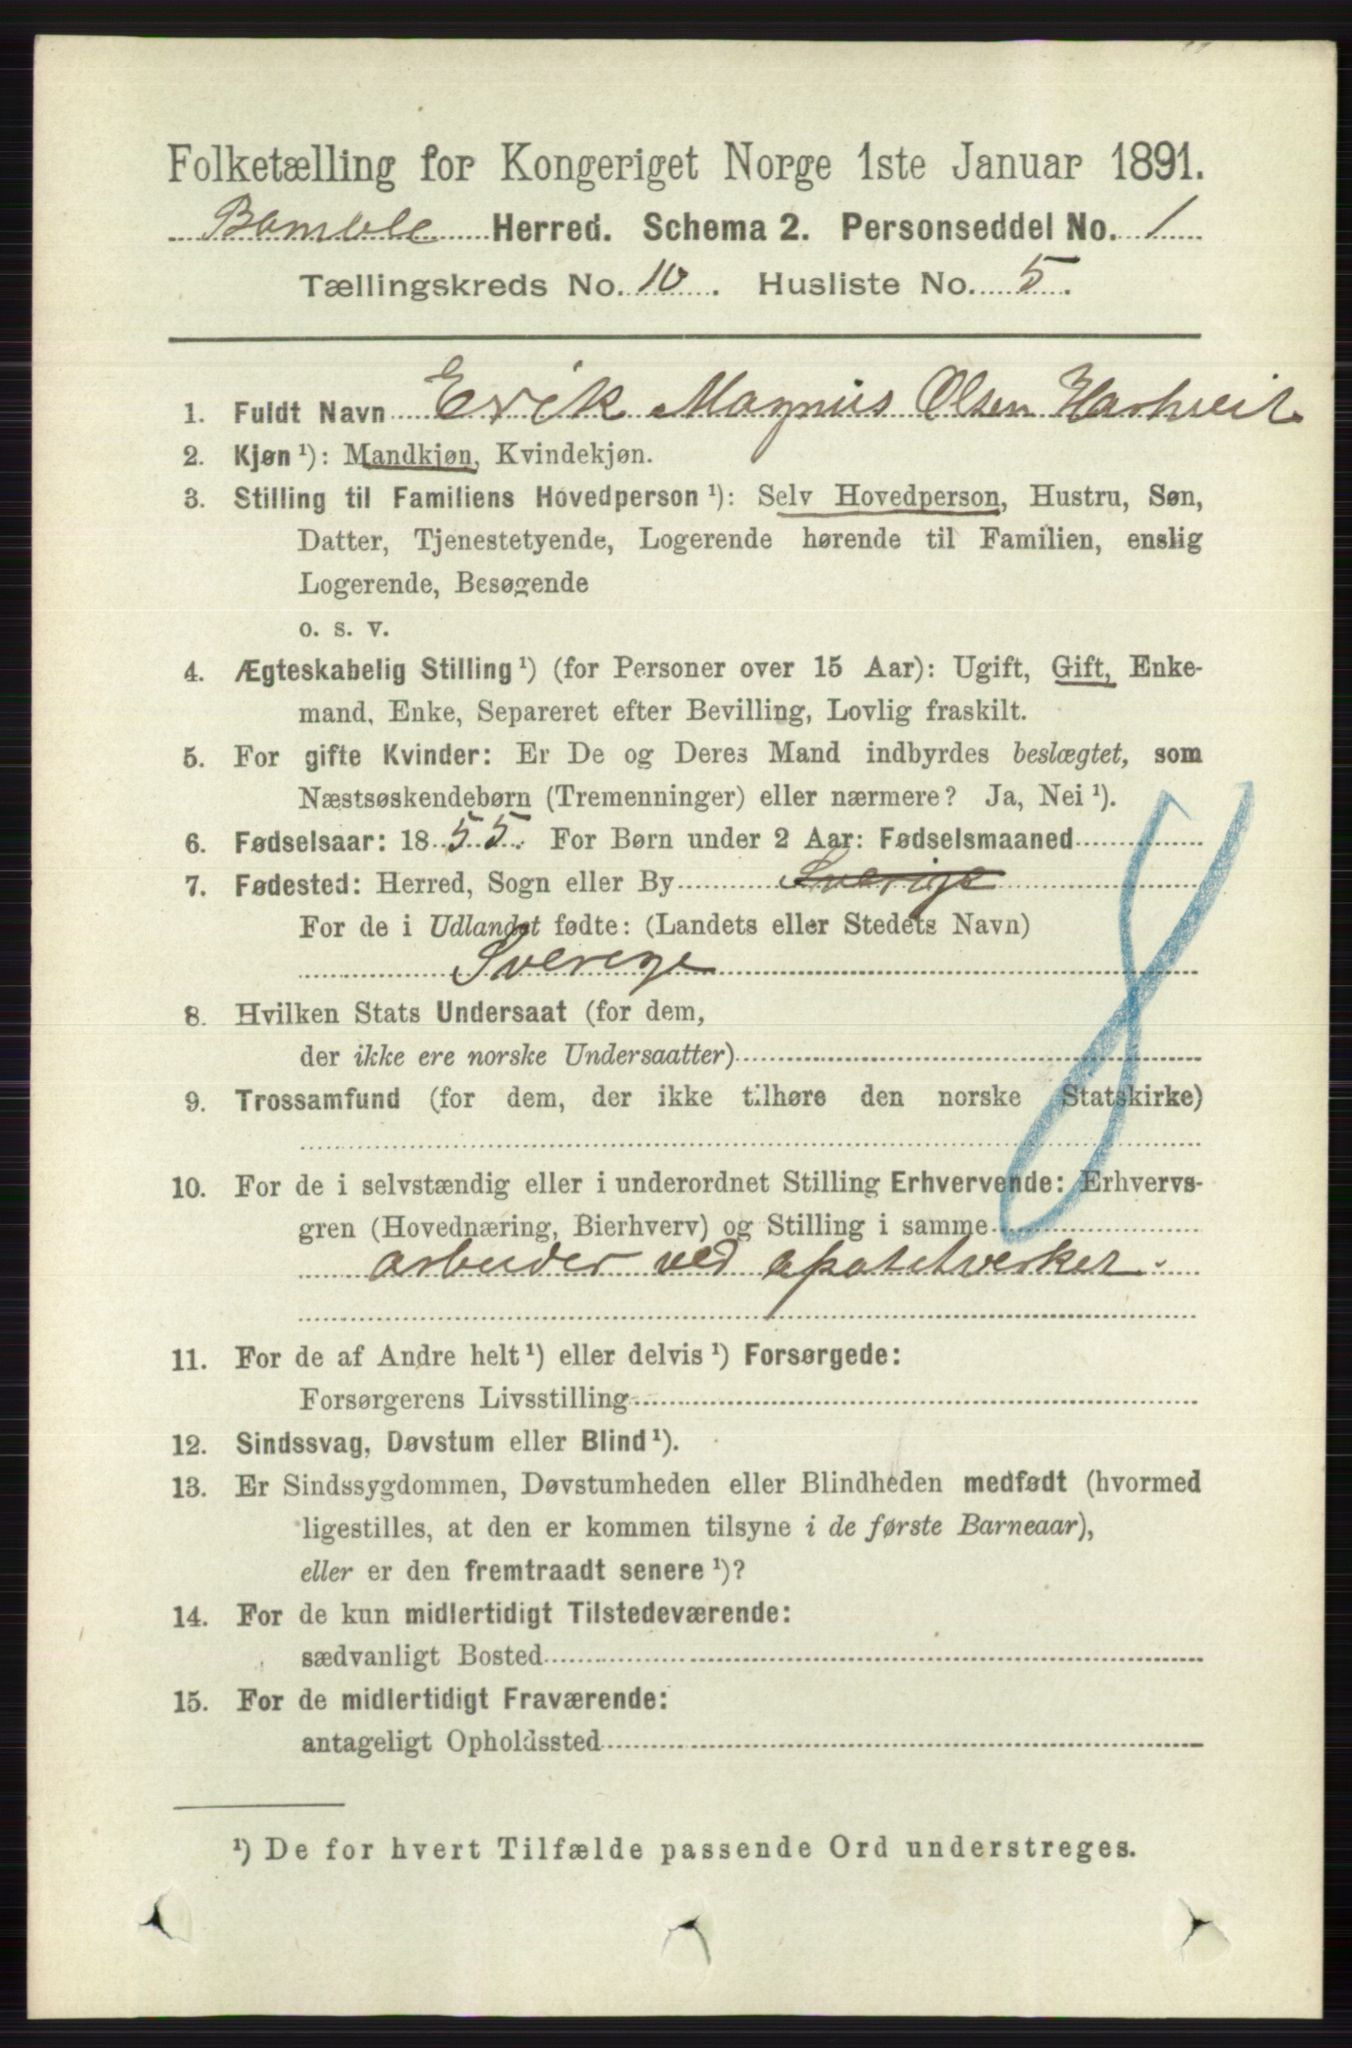 Folketælling for Kongeriget Norge 1ste Januar 1891.
Bamble Herred. Schema 2. Personseddel No. 1
Tællingskreds No. 10. Husliste No. 5.
1. Fuldt Navn Erik Magnus Olsen
2. Kjøn ¹): Mandkjøn, Kvindekjøn.
3. Stilling til Familiens Hovedperson ¹): Selv Hovedperson, Hustru, Søn,
Datter, Tjenestetyende, Logerende hørende til Familien, enslig
Logerende, Besøgende
o. s. v.
4. Ægteskabelig Stilling ¹) (for Personer over 15 Aar): Ugift, Gift, Enke-
mand, Enke, Separeret efter Bevilling, Lovlig fraskilt.
5. For gifte Kvinder: Er De og Deres Mand indbyrdes beslægtet, som
Næstsøskendebørn (Tremenninger) eller nærmere? Ja, Nei ¹).
6. Fødselsaar: 1855. For Børn under 2 Aar: Fødselsmaaned
7. Fødested: Herred, Sogn eller By Sverige
For de i Udlandet fødte: (Landets eller Stedets Navn)
Sverege
8. Hvilken Stats Undersaat (for dem,
der ikke ere norske Undersaatter)
9. Trossamfund (for dem, der ikke tilhøre den norske Statskirke)
10. For de i selvstændig eller i underordnet Stilling Erhvervende: Erhvervs-
gren (Hovednæring, Bierhverv) og Stilling i samme
arbeider ved apatitverket.
11. For de af Andre helt ¹) eller delvis ¹) Forsørgede:
Forsørgerens Livsstilling
12. Sindssvag, Døvstum eller Blind ¹).
13. Er Sindssygdommen, Døvstumheden eller Blindheden medfødt (hvormed
ligestilles, at den er kommen tilsyne i de første Barneaar),
eller er den fremtraadt senere ¹)?
14. For de kun midlertidigt Tilstedeværende:
sædvanligt Bosted
15. For de midlertidigt Fraværende:
antageligt Opholdssted
¹) De for hvert Tilfælde passende Ord understreges.